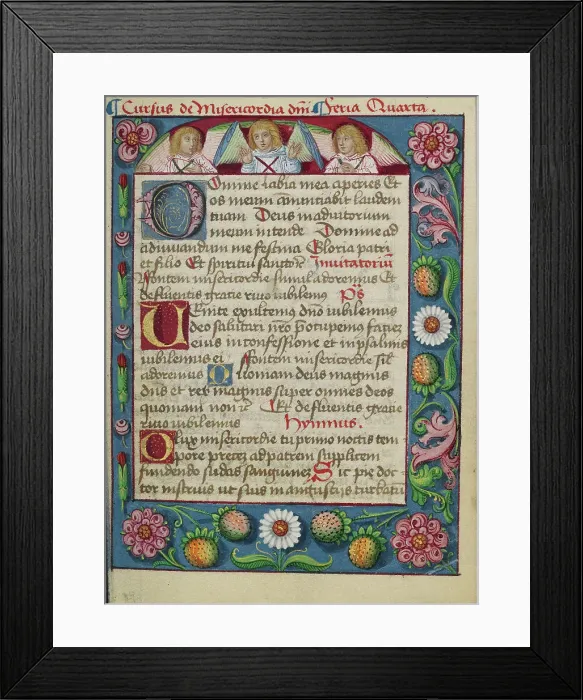 Cursus de Misericordia dni Feria Quarta.
Domine labia mea aperies Et
os meum annuntiabit laudem
tuam Deus in adiutorium
meum intende Domine ad
adiuuandum me festina Gloria patri
et filio Et spiritui sancto Inuitatoriu
Fontem misericordie simul adoremus Et
defluentis gratie riuo iubilemus Ps
Uenite exultemus dno iubilemus
deo salutari nro preocupemus faciez
eius in confessione et in psalmis
iubilemus ei Fontem misericordie sil
adoremus Quoniam deus magnus
dns et rex magnus super omnes deos
quoniam non Et defluentis gratie
riuo iubilemus Hymnus.
O lux misericordie tu primo noctis tem
pore preces ad patrem supplicem
fundendo sudas sanguinez Sic pie doc
tor instruis ut suis in angustijs turbati